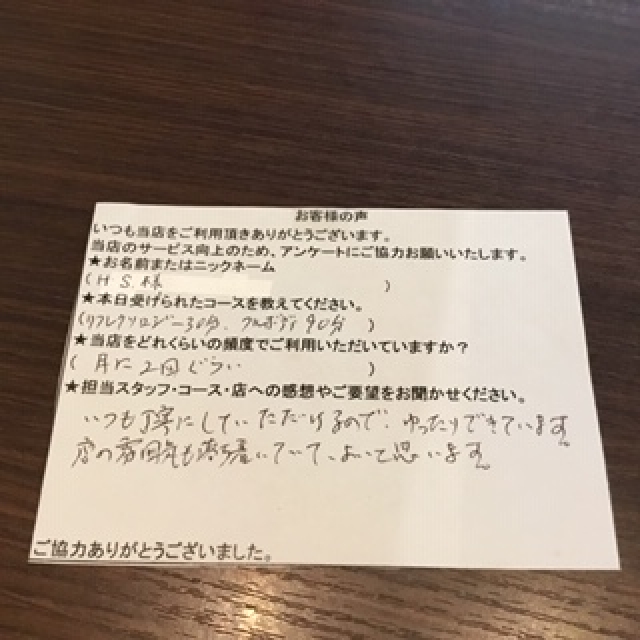 お客様の声
いつも当店をご利用頂きありがとうございます。
当店のサービス向上のため、アンケートにご協力お願いいたします。
★お名前またはニックネーム
(H S.様 )
★本日受けられたコースを教えてください。
(リフレクソロジー30分、フルボディ90分 )
★当店をどれくらいの頻度でご利用いただいていますか?
( 月に2回ぐらい )
★担当スタッフ・コース・店への感想やご要望をお聞かせください。
いつも丁寧にしていただけるので、ゆったりできています。
店の雰囲気も落ち着いていて、よいと思います。
ご協力ありがとうございました。